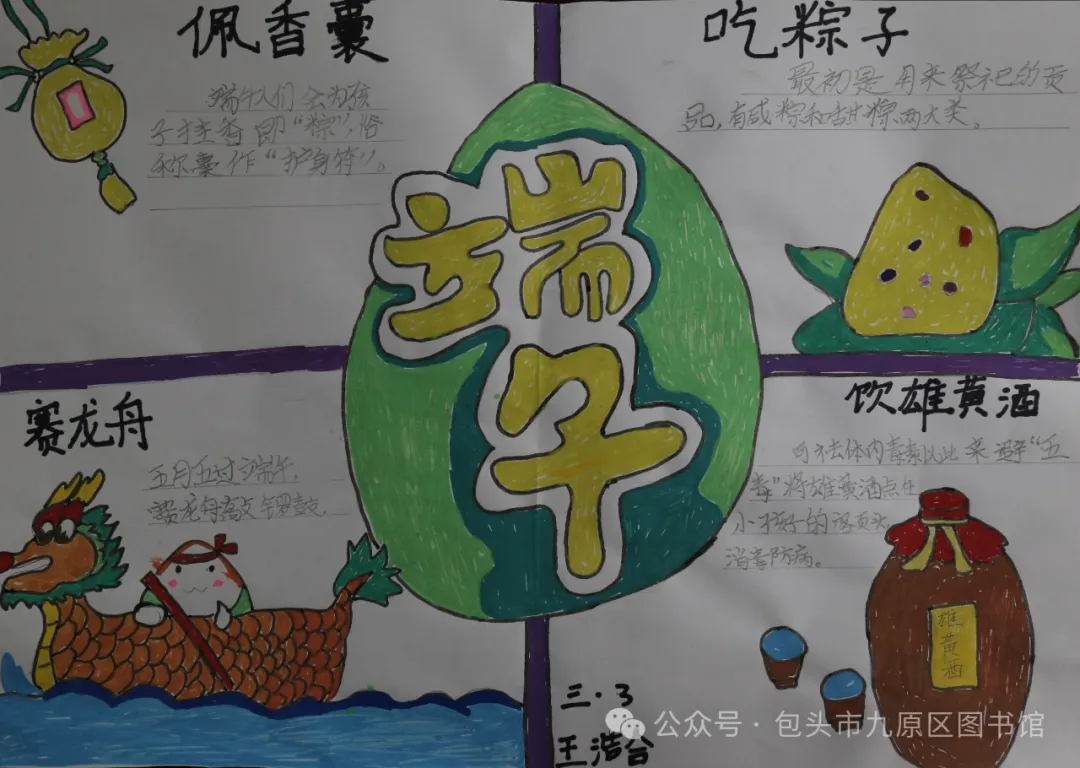 佩香囊
端午人们会为孩
子挂香即“粽”，俗
称囊作“护身符”。
吃粽子
最初是用来祭祀的贡
品，有咸粽和甜粽两大类。
端午
赛龙舟
五月五过端午，
赛龙舟敲锣鼓
饮雄黄酒
可祛体内毒素以此来避“五
毒”将雄黄酒点在
小孩子的头
消毒防病。
雄黄酒
三·3
王浩合
公众号·包头市九原区图书馆